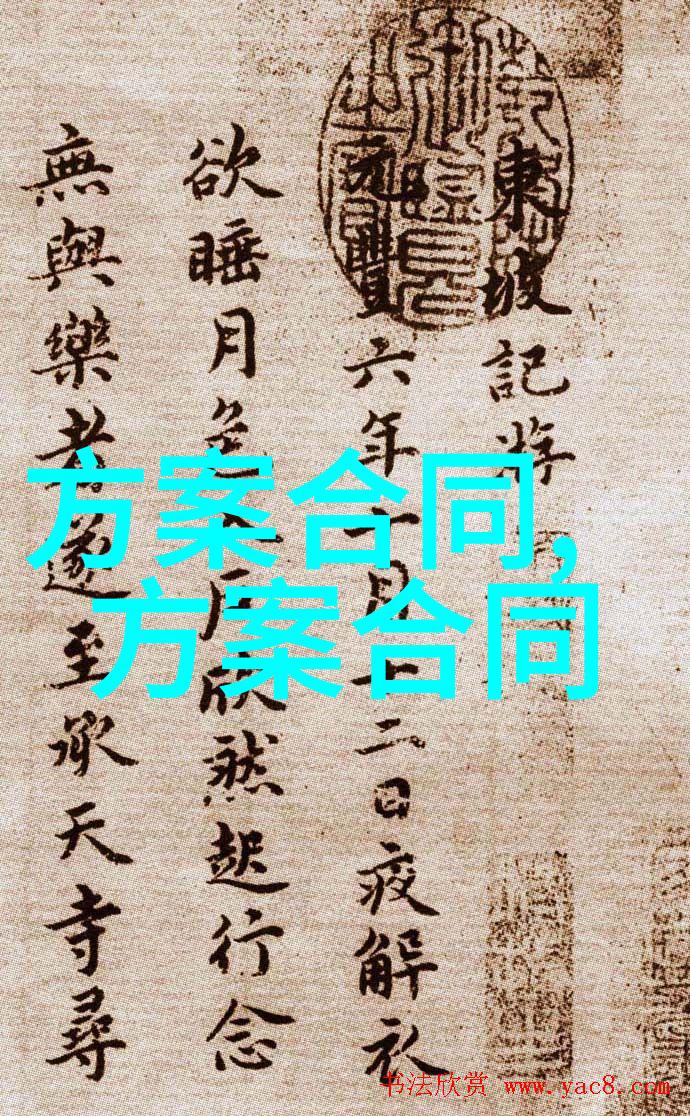 東坡記游
元豐六年十月十二日疫解衣
欲睡月色入戶欣然起行念
無與樂者遂至承天寺尋
方案合同,
方案合同
书法欣赏 www.yac8.com